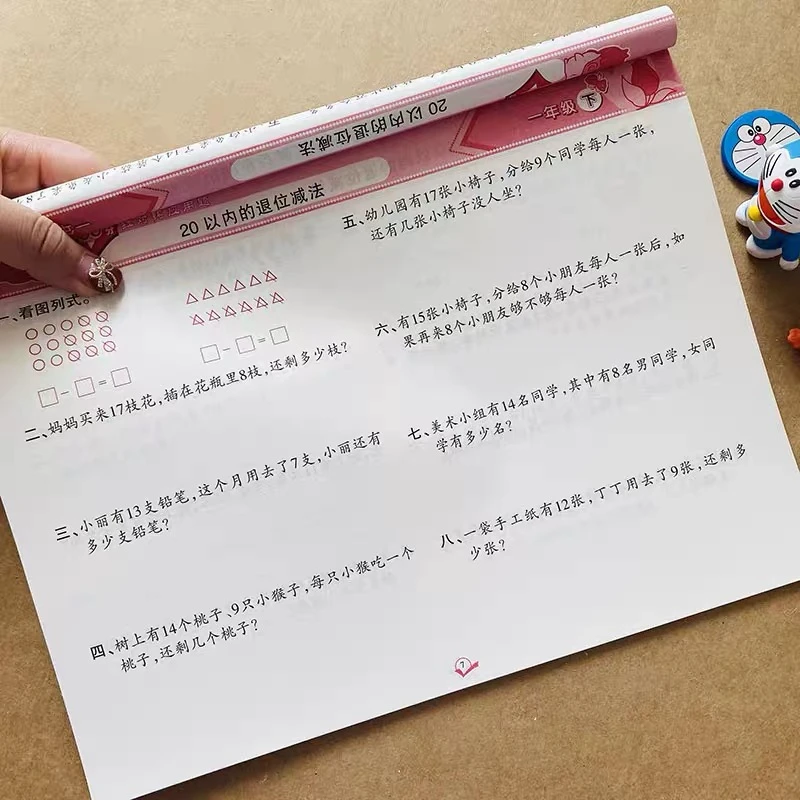 20以内的退位减法
一年级 下
20以内的退位减法
一、看图列式。
□-□=□
□-□=□
二、妈妈买来17枝花,插在花瓶里8枝,还剩多少枝?
三、小丽有13支铅笔,这个月用去了7支,小丽还有
多少支铅笔?
四、树上有14个桃子、9只小猴子,每只小猴吃一个
桃子,还剩几个桃子?
五、幼儿园有17张小椅子,分给9个同学每人一张,
还有几张小椅子没人坐?
六、有15张小椅子,分给8个小朋友每人一张后,如
果再来8个小朋友够不够每人一张?
七、美术小组有14名同学,其中有8名男同学,女同
学有多少名?
八、一袋手工纸有12张,丁丁用去了9张,还剩多
少张?
7